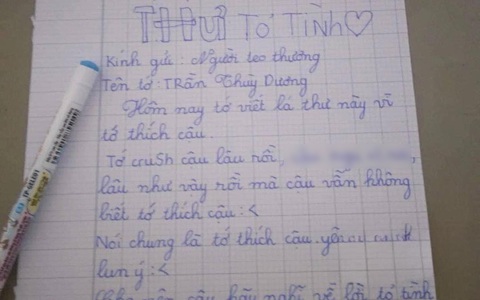 THƯ TỎ TÌNH♡
Kính gửi : Người teo thương
Tên tớ : TRần Thuỳ Dương
Hôm nay tớ viết lá thư này vì
tớ thích cậu.
Tớ cruSh cậu lâu rồi,
lâu như vậy rồi mà cậu vẫn không
biết tớ thích cậu :<
Nói chung là tớ thích cậu
lun ý :<
cậu hãy nghĩ về lời tớ tình